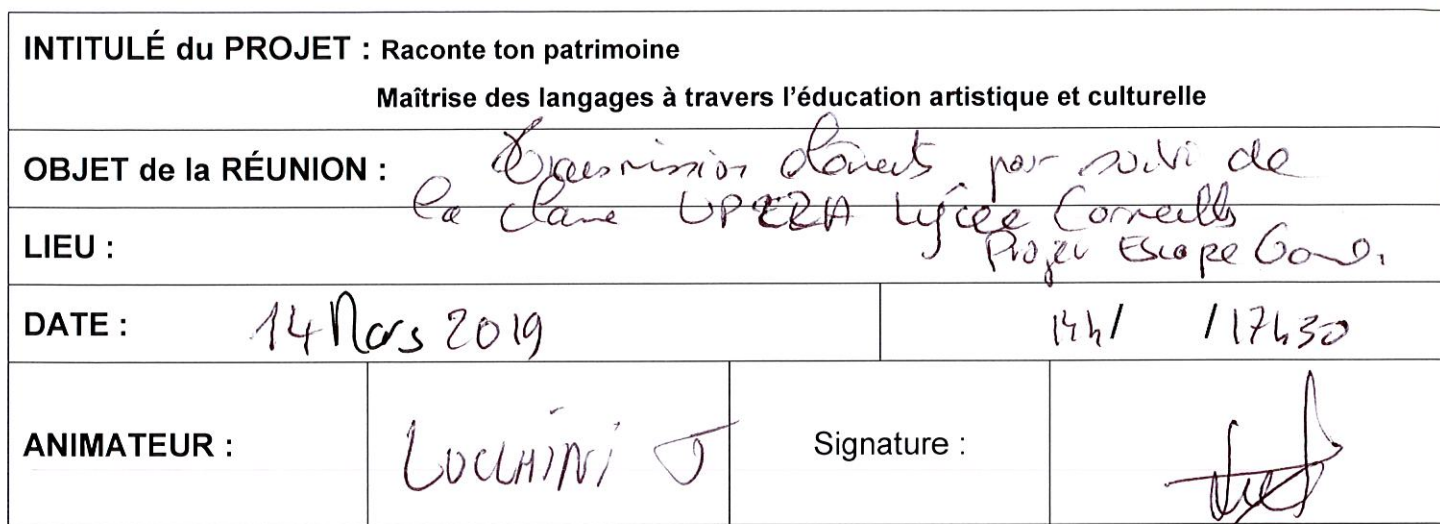 INTITULÉ du PROJET : Raconte ton patrimoine
Maîtrise des langages à travers l'éducation artistique et culturelle
OBJET de la RÉUNION : suivi de
la classe Lycée
LIEU : Projet Escape
DATE : 14 Mars 2019 14h/ /17h30
ANIMATEUR : LUCCHINI J Signature :